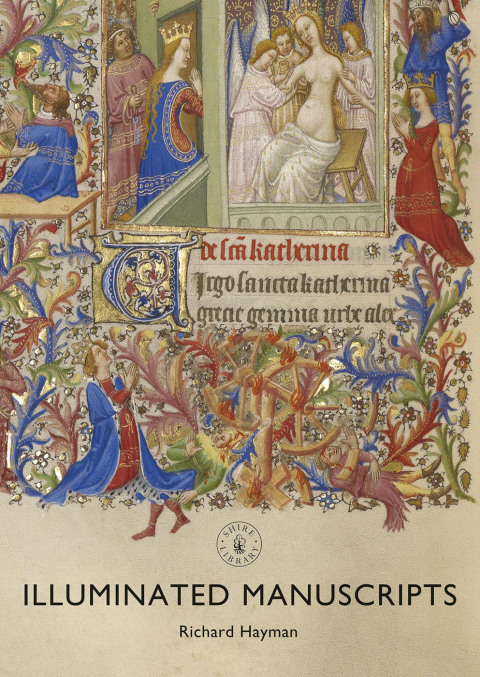 de scã katherina
VIrgo sancta katherina
grecie gemma urbe alex
SHIRE LIBRARY
ILLUMINATED MANUSCRIPTS
Richard Hayman